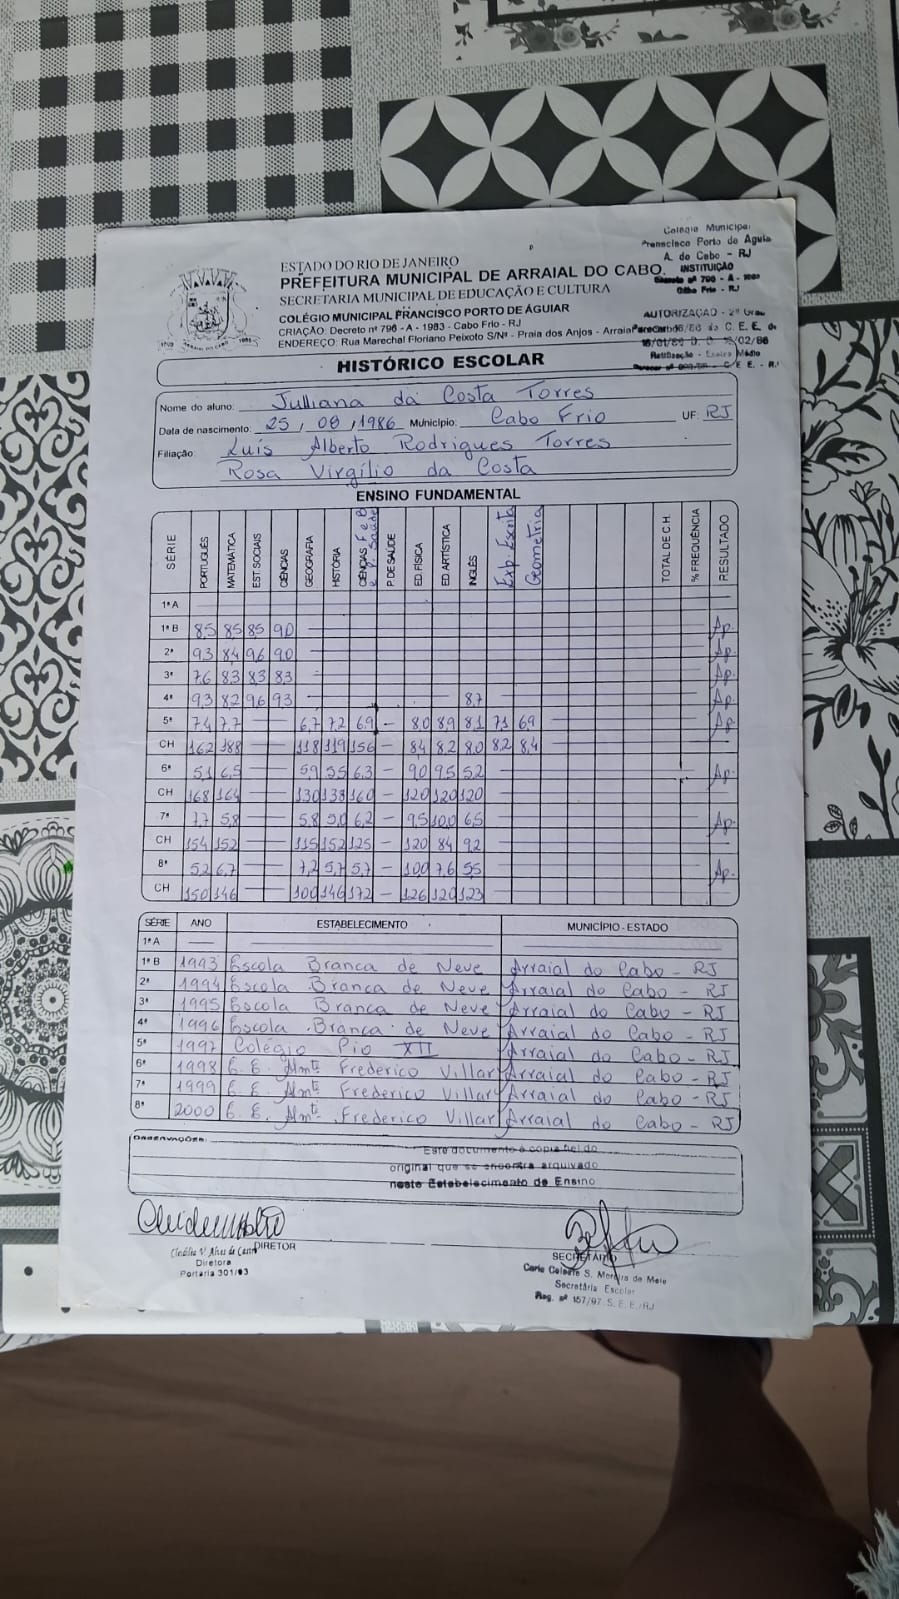 Colégio Municipal
Francisco Porto de Aguia
A. do Cabo - RJ
INSTITUIÇÃO
Cabo Frio - RJ
ESTADO DO RIO DE JANEIRO
PREFEITURA MUNICIPAL DE ARRAIAL DO CABO.
SECRETARIA MUNICIPAL DE EDUCAÇÃO E CULTURA
COLÉGIO MUNICIPAL FRANCISCO PORTO DE ÁGUIAR
CRIAÇÃO: Decreto nº 796 - A - 1983 - Cabo Frio - RJ
ENDEREÇO: Rua Marechal Floriano Peixoto S/Nº - Praia dos Anjos - Arraial
AUTORIZAÇÃO - 2º Grau
C. E. E. de
HISTÓRICO ESCOLAR
Nome do aluno: Julliana da Costa Torres
Data de nascimento: 25 / 08 / 1986 Município: Cabo Frio UF: RJ
Filiação: Luís Alberto Rodrigues Torres
Rosa Virgílio da Costa
ENSINO FUNDAMENTAL
SÉRIE PORTUGUÊS MATEMÁTICA EST. SOCIAIS CIÊNCIAS GEOGRAFIA HISTÓRIA CIÊNCIAS F e B e P. Saúde P. DE SAÚDE ED. FÍSICA ED. ARTÍSTICA INGLÊS Exp. Escrita Geometria TOTAL DE C.H. % FREQUÊNCIA RESULTADO
1ª A
1ª B 8,5 8,5 8,5 9,0 Ap.
2ª 9,3 8,4 9,6 9,0 Ap.
3ª 7,6 8,3 8,3 8,3 Ap.
4ª 9,3 8,2 9,6 9,3 8,7 Ap.
5ª 7,4 7,7 6,7 7,2 6,9 - 8,0 8,9 8,1 7,1 6,9 Ap.
CH 162 188 118 119 156 - 84 82 80 82 84
6ª 5,1 6,5 5,9 5,5 6,3 - 9,0 9,5 5,2 Ap.
CH 168 164 130 138 160 - 120 120 120
7ª 7,7 5,8 5,8 5,0 6,2 - 9,5 10,0 6,5 Ap.
CH 154 152 115 152 125 - 120 84 92
8ª 5,2 6,7 7,2 5,7 5,7 - 10,0 7,6 5,5 Ap.
CH 150 146 100 146 172 - 126 120 123
SÉRIE ANO ESTABELECIMENTO MUNICÍPIO - ESTADO
1ª A
1ª B 1993 Escola Branca de Neve Arraial do Cabo - RJ
2ª 1994 Escola Branca de Neve Arraial do Cabo - RJ
3ª 1995 Escola Branca de Neve Arraial do Cabo - RJ
4ª 1996 Escola Branca de Neve Arraial do Cabo - RJ
5ª 1997 Colégio Pio XII Arraial do Cabo - RJ
6ª 1998 E. E. Almte Frederico Villar Arraial do Cabo - RJ
7ª 1999 E. E. Almte Frederico Villar Arraial do Cabo - RJ
8ª 2000 E. E. Almte Frederico Villar Arraial do Cabo - RJ
OBSERVAÇÕES:
Este documento é copia fiel do
original que se encontra arquivado
neste Estabelecimento de Ensino
DIRETOR
Diretora
Portaria 301/93
SECRETÁRIO
Secretária Escolar
Reg. nº 157/97. S. E. E. /RJ